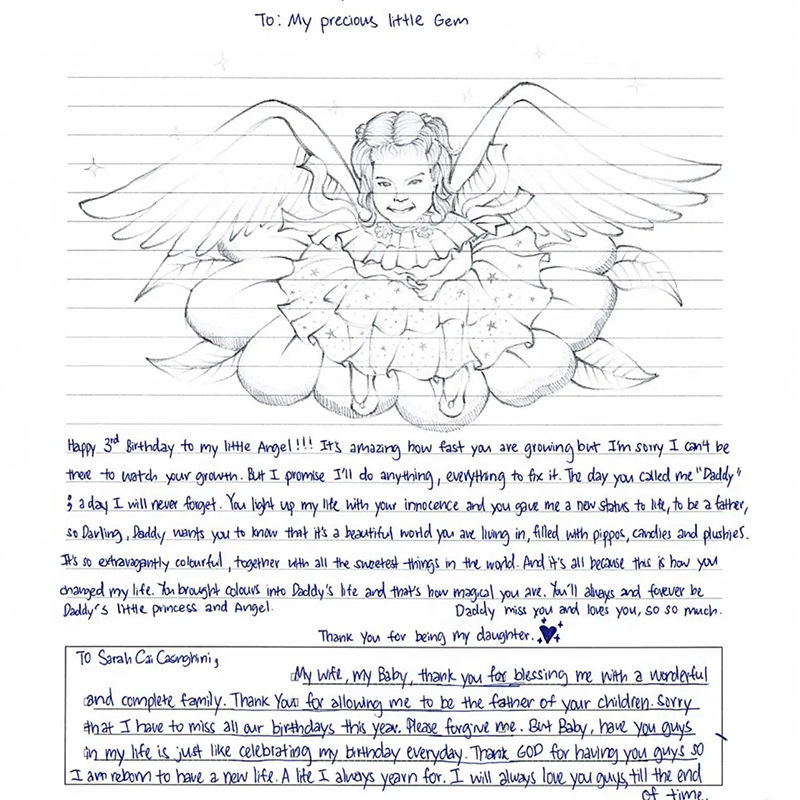 To: My precious little Gem
Happy 3rd Birthday to my little Angel!!! It's amazing how fast you are growing but I'm sorry I can't be
there to watch your growth. But I promise I'll do anything, everything to fix it. The day you called me "Daddy"
; a day I will never forget. You light up my life with your innocence and you gave me a new status to life, to be a father,
so Darling, Daddy wants you to know that it's a beautiful world you are living in, filled with pippos, candies and plushies.
It's so extravagantly colourful, together with all the sweetest things in the world. And it's all because this is how you
changed my life. You brought colours into Daddy's life and that's how magical you are. You'll always and forever be
Daddy's little princess and Angel. Daddy miss you and loves you, so so much.
Thank you for being my daughter.
To Sarah Cai
My wife, my Baby, thank you for blessing me with a wonderful
and complete family. Thank You for allowing me to be the father of your children. Sorry
that I have to miss all our birthdays this year. Please forgive me. But Baby, have you guys
in my life is just like celebrating my birthday everyday. Thank GOD for having you guys so
I am reborn to have a new life. A life I always yearn for. I will always love you guys, till the end
of time.